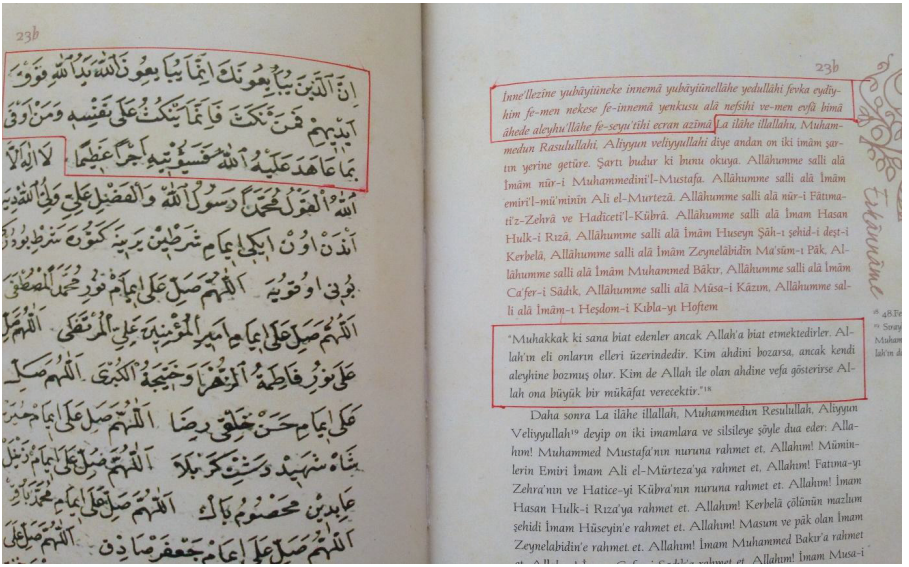 23b
اِنَّ الَّذِينَ يُبَايِعُونَكَ اِنَّمَا يُبَايِعُونَ اللّٰهَ يَدُ اللّٰهِ فَوْقَ
اَيْدِيهِمْ فَمَنْ نَكَثَ فَاِنَّمَا يَنْكُثُ عَلَى نَفْسِهِ وَمَنْ اَوْفَى
بِمَا عَاهَدَ عَلَيْهُ اللّٰهَ فَسَيُؤْتِيهِ اَجْرًا عَظِيمًا لَا اِلٰهَ اِلَّا
اللّٰهُ الْقَوْلُ مُحَمَّدًا رَسُولُ اللّٰهِ وَالْفَضْلُ عَلِيٌّ وَلِيُّ اللّٰه
اَنْدَنْ اوُنْ اِيكِى اِمَامِ شَرْطِينْ يَرِينَه كَتُورَ شَرْطِ بُودُرْ
بُونِى اوُقُويَه اَللّٰهُمَّ صَلِّ عَلَى اِمَامِ نُورِ مُحَمَّدِ الْمُصْطَفَى
اَللّٰهُمَّ صَلِّ عَلَى اِمَامِ اَمِيرِ الْمُؤْمِنِينَ عَلِىِّ الْمُرْتَضَى اَللّٰهُمَّ صَلِّ
عَلَى نُورِ فَاطِمَةُ الزَّهْرَا وَخَدِيجَةُ الْكُبْرَى اَللّٰهُمَّ صَلِّ
عَلَى اِمَامِ حَسَنْ خُلْقِى رِضَا اَللّٰهُمَّ صَلِّ عَلَى اِمَامِ حُسَيْنْ
شَاهِ شَهِيدِ دَشْتِ كَرْبَلَا اَللّٰهُمَّ صَلِّ عَلَى اِمَامِ زَيْنَلْ
عَابِدِينِ مَحْصُومِ پَاكْ اَللّٰهُمَّ صَلِّ عَلَى اِمَامِ مُحَمَّد
اَللّٰهُمَّ صَلِّ عَلَى اِمَامِ جَعْفَرِ صَادِقْ اَللّٰهُمَّ صَلِّ عَلَى
23b
İnne'llezine yubâyiûneke innemâ yubâyiûnellâhe yedullâhi fevka eydiy-
him fe-men nekese fe-innemâ yenkusu alâ nefsihi ve-men evfâ bimâ
âhede aleyhu'llâhe fe-seyu'tihi ecran azîmâ La ilâhe illallahu, Muham-
medun Rasulullahi, Aliyyun veliyyullahi diye andan on iki imâm şar-
tın yerine getüre. Şartı budur ki bunu okuya. Allâhumme salli alâ
İmâm nûr-i Muhammedini'l-Mustafa. Allâhumme salli alâ İmâm
emiri'l-mü'minîn Ali el-Murtezâ. Allâhumme salli alâ nûr-i Fâtıma-
ti'z-Zehrâ ve Hadiceti'l-Kübrâ. Allâhumme salli alâ İmam Hasan
Hulk-i Rızâ, Allâhumme salli alâ İmâm Huseyn Şâh-ı şehid-i deşt-i
Kerbelâ, Allâhumme salli alâ İmâm Zeynelâbidîn Ma'sûm-i Pâk, Al-
lâhumme salli alâ İmâm Muhammed Bâkır, Allâhumme salli alâ İmâm
Ca'fer-i Sâdık, Allâhumme salli alâ Mûsa-i Kâzım, Allâhumme sal-
li alâ İmâm-ı Heşdom-i Kıbla-yı Hoftem
"Muhakkak ki sana biat edenler ancak Allah'a biat etmektedirler. Al-
lah'ın eli onların elleri üzerindedir. Kim ahdini bozarsa, ancak kendi
aleyhine bozmuş olur. Kim de Allah ile olan ahdine vefa gösterirse Al-
lah ona büyük bir mükâfat verecektir."¹⁸
Daha sonra La ilâhe illallah, Muhammedun Resulullah, Aliyyun
Veliyyullah¹⁹ deyip on iki imamlara ve silsileye şöyle dua eder: Alla-
hım! Muhammed Mustafa'nın nuruna rahmet et, Allahım! Mümin-
lerin Emiri İmam Ali el-Mürteza'ya rahmet et, Allahım! Fatıma-yı
Zehra'nın ve Hatice-yi Kübra'nın nuruna rahmet et, Allahım! İmam
Hasan Hulk-i Rıza'ya rahmet et. Allahım! Kerbelâ çölünün mazlum
şehidi İmam Hüseyin'e rahmet et. Allahım! Masum ve pâk olan İmam
Zeynelabidin'e rahmet et. Allahım! İmam Muhammed Bakır'a rahmet
et, Allahım! İmam Cafer-i Sadık'a rahmet et, Allahım! İmam Musa-i
Erkânnâme
¹⁸ 48.Fe